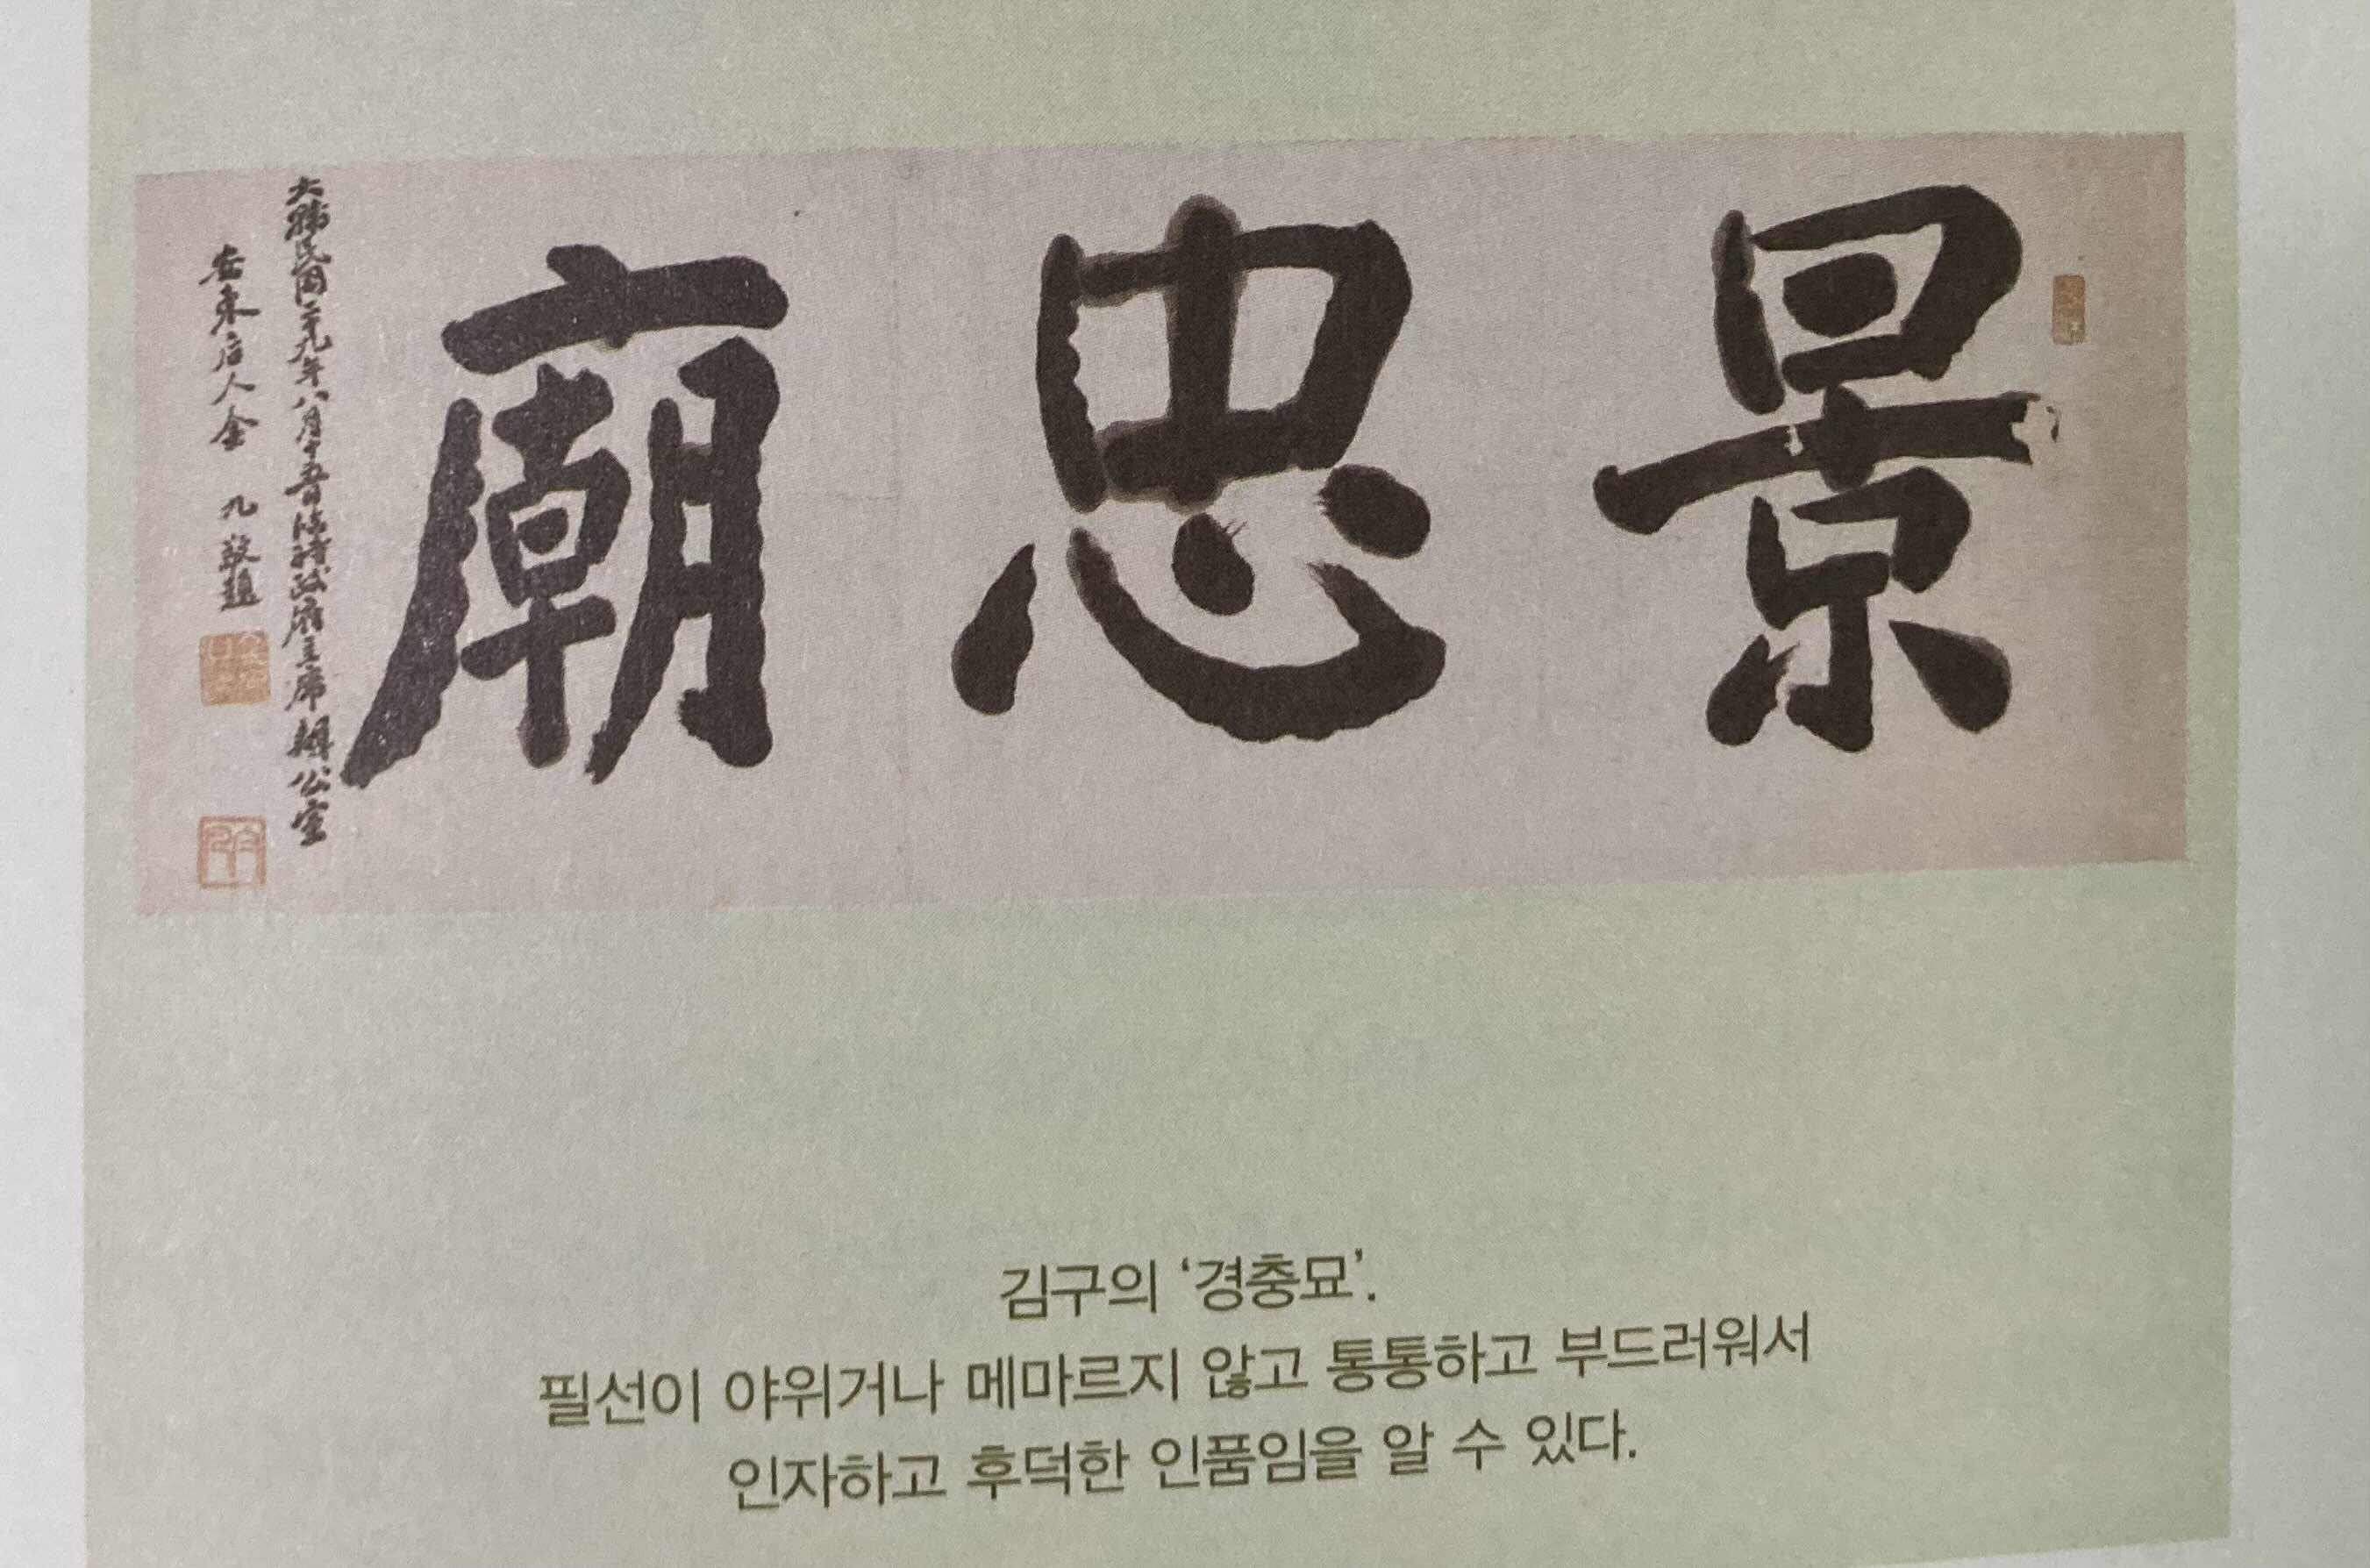 景忠廟
大韓民國二十九年八月十五日臨時政府主席辦公室
安東后人金九敬題
김구의 ‘경충묘’.
필선이 야위거나 메마르지 않고 통통하고 부드러워서
인자하고 후덕한 인품임을 알 수 있다.